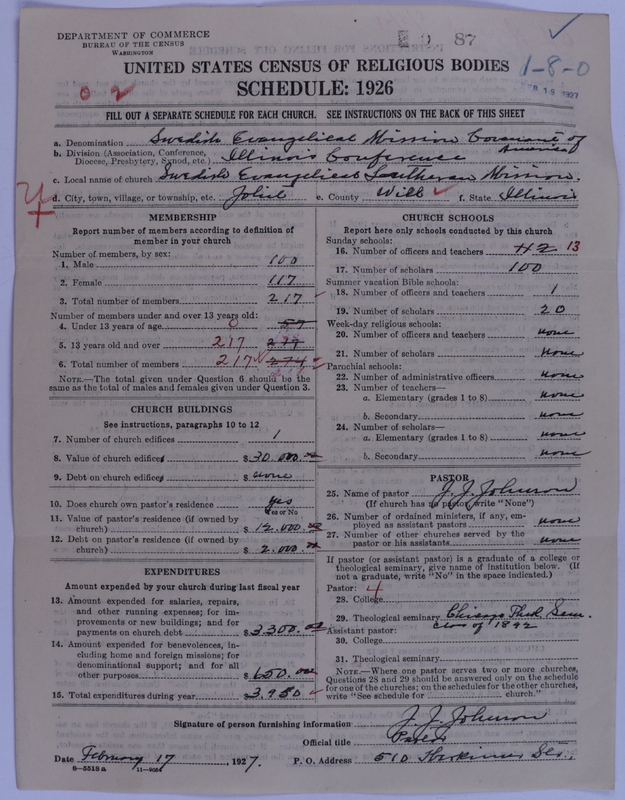 DEPARTMENT OF COMMERCE
BUREAU OF THE CENSUS
WASHINGTON
87
1-8-0
UNITED STATES CENSUS OF RELIGIOUS BODIES
SCHEDULE: 1926
FILL OUT A SEPARATE SCHEDULE FOR EACH CHURCH. SEE INSTRUCTIONS ON THE BACK OF THIS SHEET
a. Denomination Swedish Evangelical Mission Covenant of America
b. Division (Association, Conference, Diocese, Presbytery, Synod, etc.) Illinois Conference
c. Local name of church Swedish Evangelical Lutheran Mission.
d. City, town, village, or township, etc. Joliet e. County Will f. State Illinois
MEMBERSHIP
Report number of members according to definition of
member in your church
Number of members, by sex:
1. Male 100
2. Female 117
3. Total number of members 217
Number of members under and over 13 years old:
4. Under 13 years of age 0 57
5. 13 years old and over 217
6. Total number of members 217 274
NOTE.—The total given under Question 6 should be the
same as the total of males and females given under Question 3.
CHURCH BUILDINGS
See instructions, paragraphs 10 to 12
7. Number of church edifices 1
8. Value of church edifices $30.000.00
9. Debt on church edifices $none
10. Does church own pastor's residence yes
Yes or No
11. Value of pastor's residence (if owned by
church) $12.000.00
12. Debt on pastor's residence (if owned by
church) $2.000.00
EXPENDITURES
Amount expended by your church during last fiscal year
13. Amount expended for salaries, repairs,
and other running expenses; for im-
provements or new buildings; and for
payments on church debt $3300.00
14. Amount expended for benevolences, in-
cluding home and foreign missions; for
denominational support; and for all
other purposes $650.00
15. Total expenditures during year 3.950
CHURCH SCHOOLS
Report here only schools conducted by this church
Sunday schools:
16. Number of officers and teachers 13
17. Number of scholars 100
Summer vacation Bible schools:
18. Number of officers and teachers 1
19. Number of scholars 20
Week-day religious schools:
20. Number of officers and teachers none
21. Number of scholars none
Parochial schools:
22. Number of administrative officers none
23. Number of teachers—
a. Elementary (grades 1 to 8) none
b. Secondary none
24. Number of scholars—
a. Elementary (grades 1 to 8) none
b. Secondary none
PASTOR
25. Name of pastor J. J. Johnson
(If church has no pastor, write "None")
26. Number of ordained ministers, if any, em-
ployed as assistant pastors none
27. Number of other churches served by the
pastor or his assistants none
If pastor (or assistant pastor) is a graduate of a college or
theological seminary, give name of institution below. (If
not a graduate, write "No" in the space indicated.)
Pastor: 4
28. College
29. Theological seminary Chicago Theol. Sem.
class of 1892
Assistant pastor:
30. College
31. Theological seminary
NOTE.—Where one pastor serves two or more churches,
Questions 28 and 29 should be answered only on the schedule
for one of the churches; on the schedules for the other churches,
write "See schedule for church."
Signature of person furnishing information J. J. Johnson
Official title Pastor
Date February 17, 1927. P. O. Address 510 Herkimer Str.,
8—5518a 11—9051